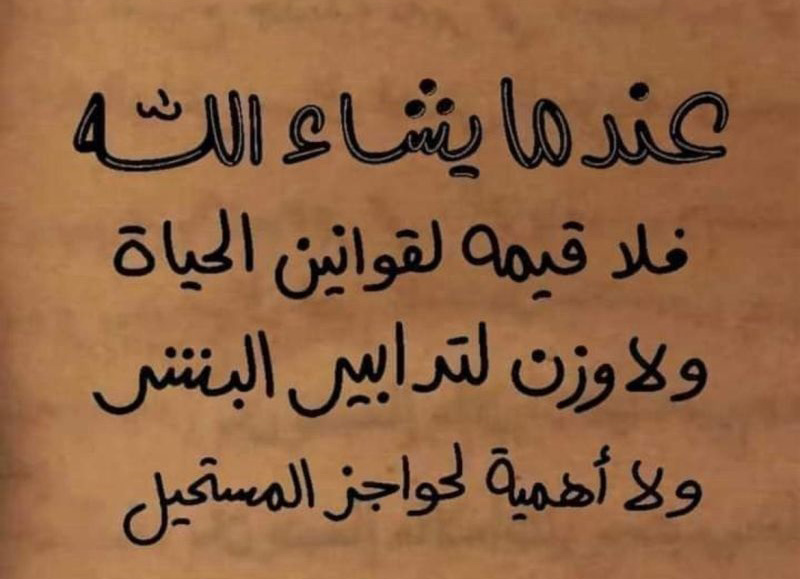 عندما يشاء اللّه
فلا قيمه لقوانين الحياة
ولا وزن لتدابير البشر
ولا أهمية لحواجز المستحيل